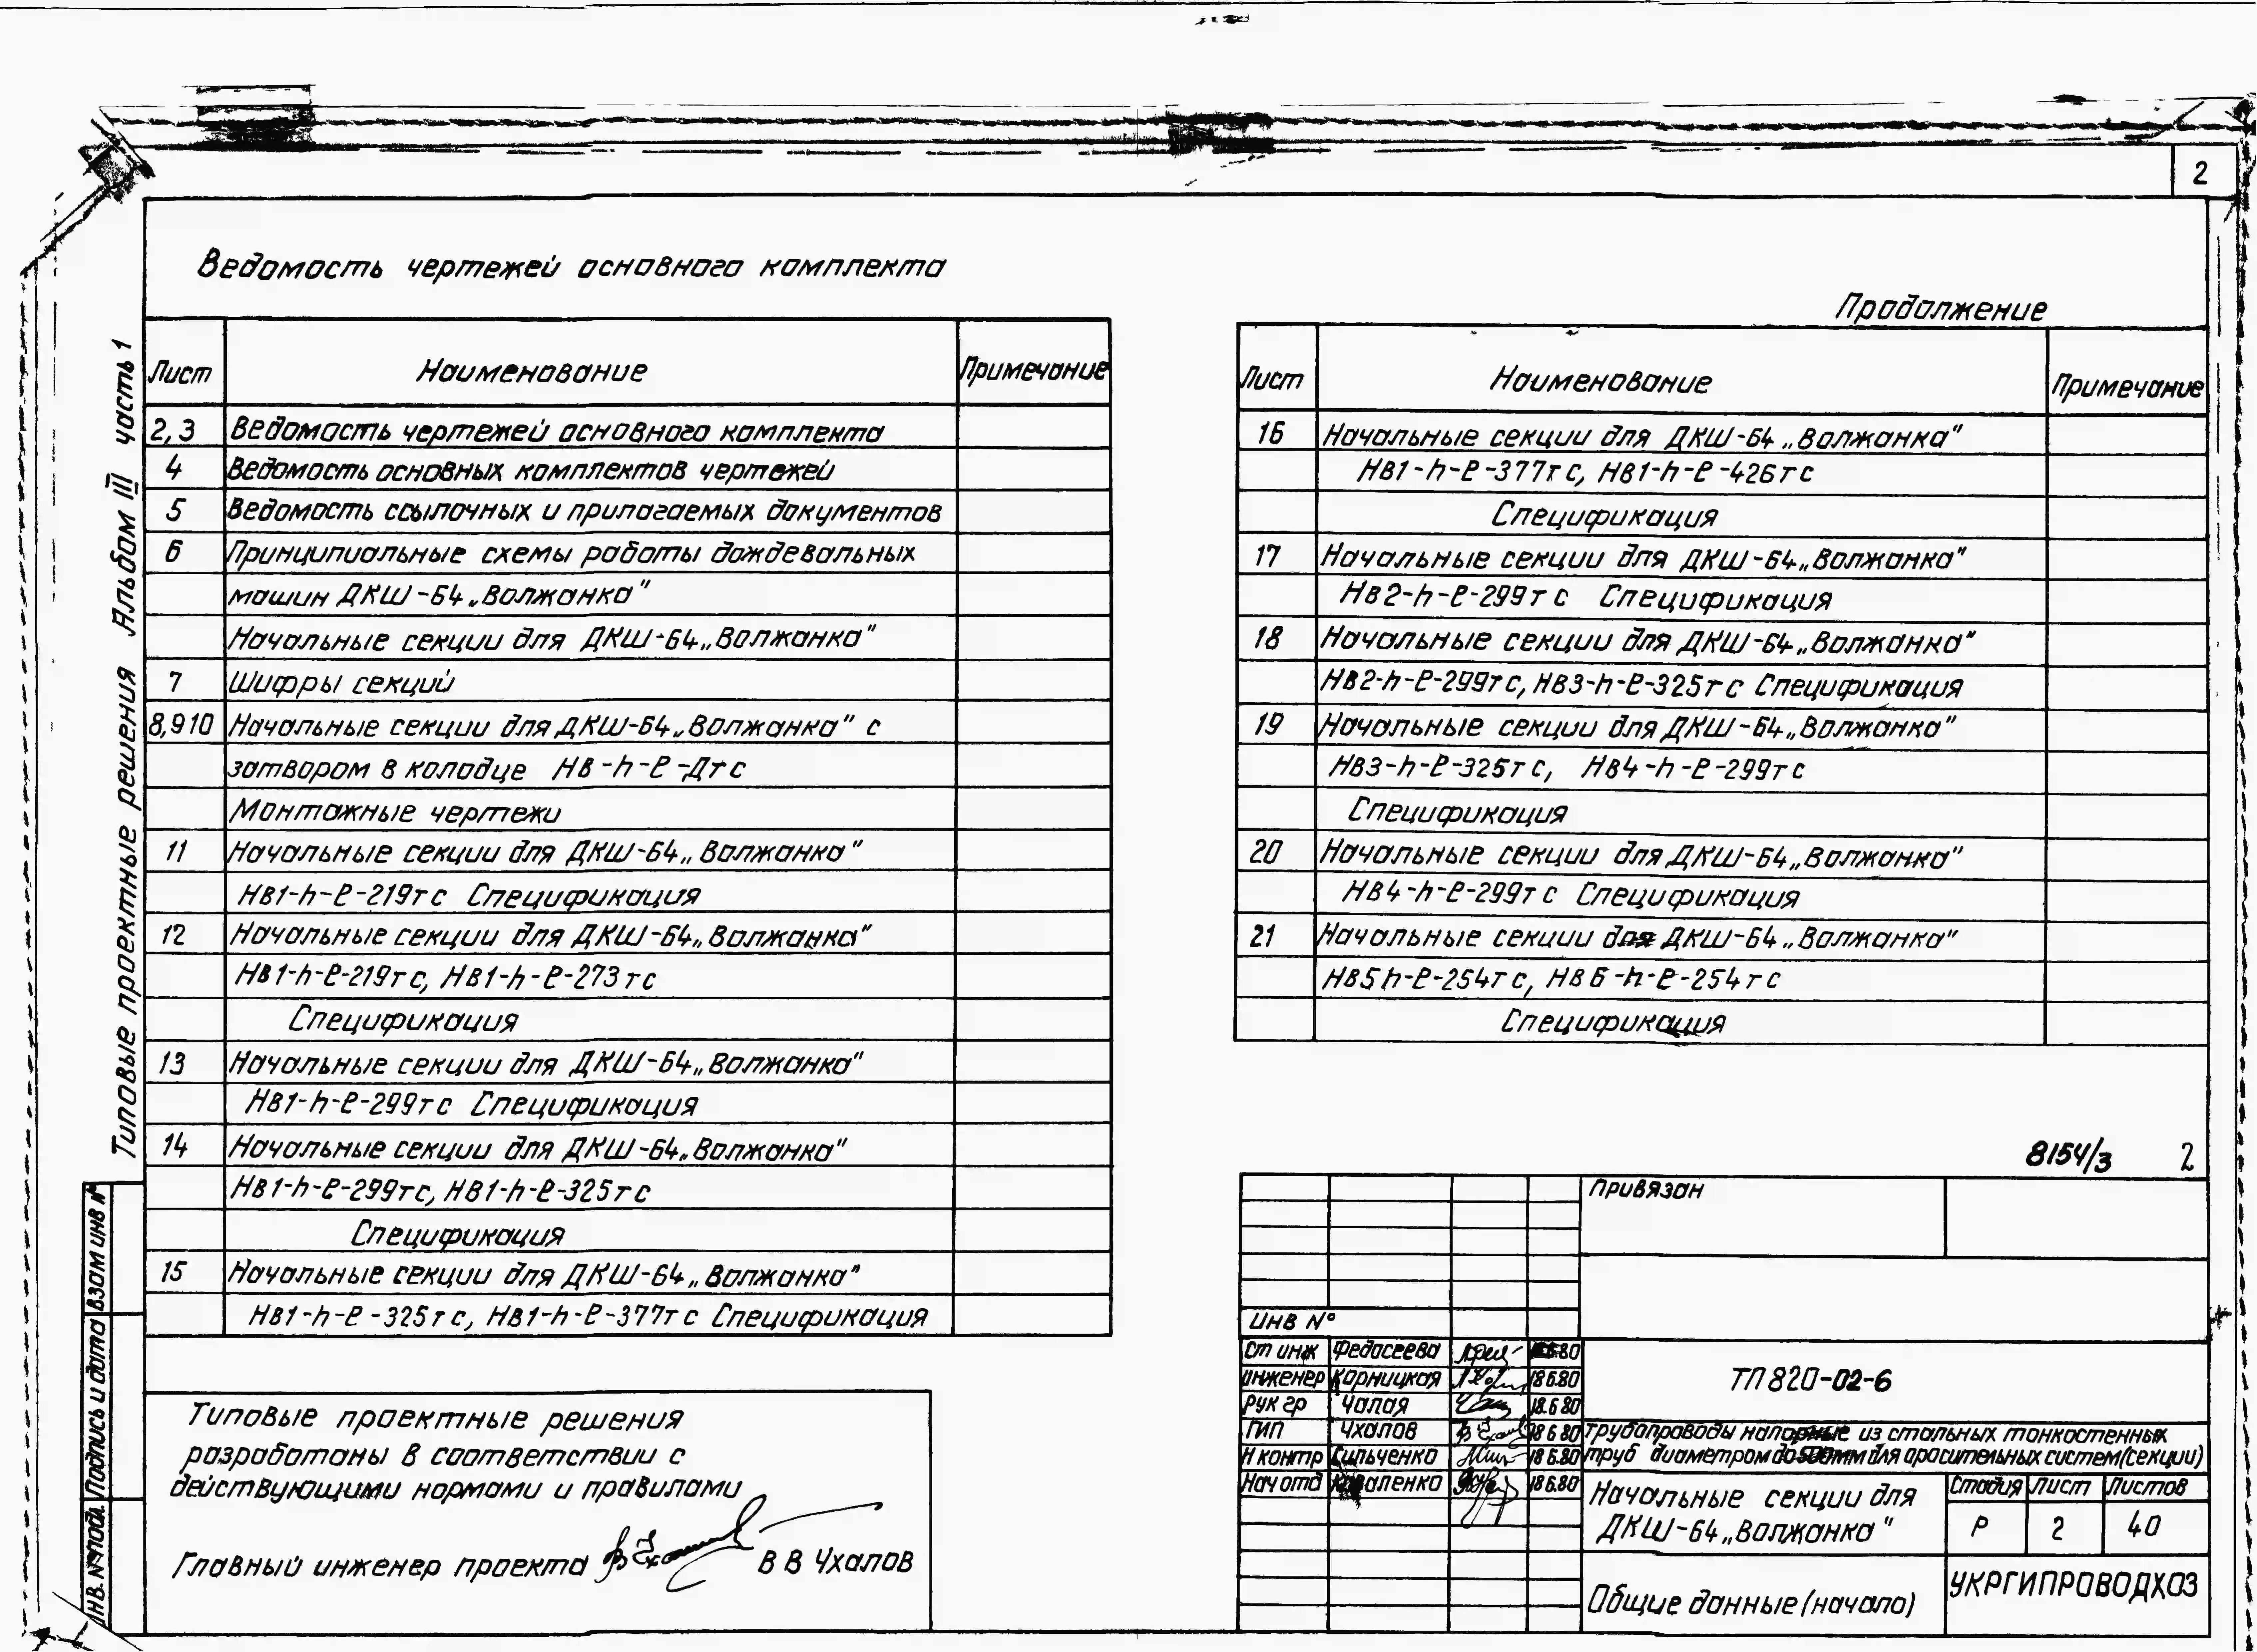 2
Ведомость чертежей основного комплекта
Лист Наименование Примечание
2,3 Ведомость чертежей основного комплекта
4 Ведомость основных комплектов чертежей
5 Ведомость ссылочных и прилагаемых документов
6 Принципиальные схемы работы дождевальных
машин ДКШ-64 „Волжанка"
Начальные секции для ДКШ-64 „Волжанка"
7 Шифры секций
8,9 10 Начальные секции для ДКШ-64 „Волжанка" с
затвором в колодце НВ-h-ℓ-Дтс
Монтажные чертежи
11 Начальные секции для ДКШ-64 „Волжанка"
НВ1-h-ℓ-219тс Спецификация
12 Начальные секции для ДКШ-64 „Волжанка"
НВ1-h-ℓ-219тс, НВ1-h-ℓ-273тс
Спецификация
13 Начальные секции для ДКШ-64 „Волжанка"
НВ1-h-ℓ-299тс Спецификация
14 Начальные секции для ДКШ-64 „Волжанка"
НВ1-h-ℓ-299тс, НВ1-h-ℓ-325тс
Спецификация
15 Начальные секции для ДКШ-64 „Волжанка"
НВ1-h-ℓ-325тс, НВ1-h-ℓ-377тс Спецификация
Продолжение
Лист Наименование Примечание
16 Начальные секции для ДКШ-64 „Волжанка"
НВ1-h-ℓ-377тс, НВ1-h-ℓ-426тс
Спецификация
17 Начальные секции для ДКШ-64 „Волжанка"
НВ2-h-ℓ-299тс Спецификация
18 Начальные секции для ДКШ-64 „Волжанка"
НВ2-h-ℓ-299тс, НВ3-h-ℓ-325тс Спецификация
19 Начальные секции для ДКШ-64 „Волжанка"
НВ3-h-ℓ-325тс, НВ4-h-ℓ-299тс
Спецификация
20 Начальные секции для ДКШ-64 „Волжанка"
НВ4-h-ℓ-299тс Спецификация
21 Начальные секции для ДКШ-64 „Волжанка"
НВ5h-ℓ-254тс, НВ6-h-ℓ-254тс
Спецификация
Типовые проектные решения Альбом III часть 1
ИНВ. № подл. Подпись и дата Взам инв №
Типовые проектные решения
разработаны в соответствии с
действующими нормами и правилами
Главный инженер проекта В В Чхалов
8154/3 2
Привязан
ИНВ №
Ст инж Федосеева 80
Инженер Корницкая 18 6.80
Рук гр Чалая 18.6 80
ГИП Чхалов 18 6.80
Н контр Сильченко 18 6.80
Нач отд Коваленко 18 6.80
ТП 820-02-6
Трубопроводы напорные из стальных тонкостенных
труб диаметром до 500мм для оросительных систем (секции)
Начальные секции для
ДКШ-64 „Волжанка"
Стадия Лист Листов
Р 2 40
Общие данные (начало)
УКРГИПРОВОДХОЗ